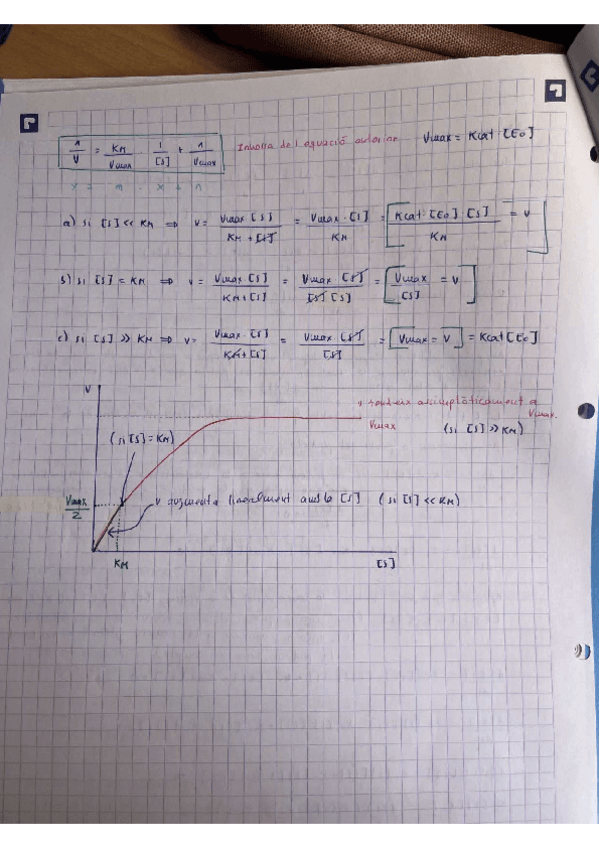 1/V = KM/Vmax · 1/[S] + 1/Vmax Inversa de l'equació anterior Vmax = Kcat · [E0]
y = m · x + n
a) si [S] << KM ⇒ v = Vmax [S] / KM + [S] = Vmax · [S] / KM = [Kcat · [E0] [S] / KM = v]
b) si [S] = KM ⇒ v = Vmax [S] / KM+[S] = Vmax [S] / [S] [S] = [Vmax / [S] = v]
c) si [S] >> KM ⇒ v = Vmax · [S] / KM+[S] = Vmax [S] / [S] = [Vmax = v] = Kcat [E0]
V
v tendeix asimptòticament a
Vmax.
Vmax (si [S] >> KM)
(si [S] = KM)
Vmax/2
v augmenta linealment amb la [S] (si [S] << KM)
KM [S]